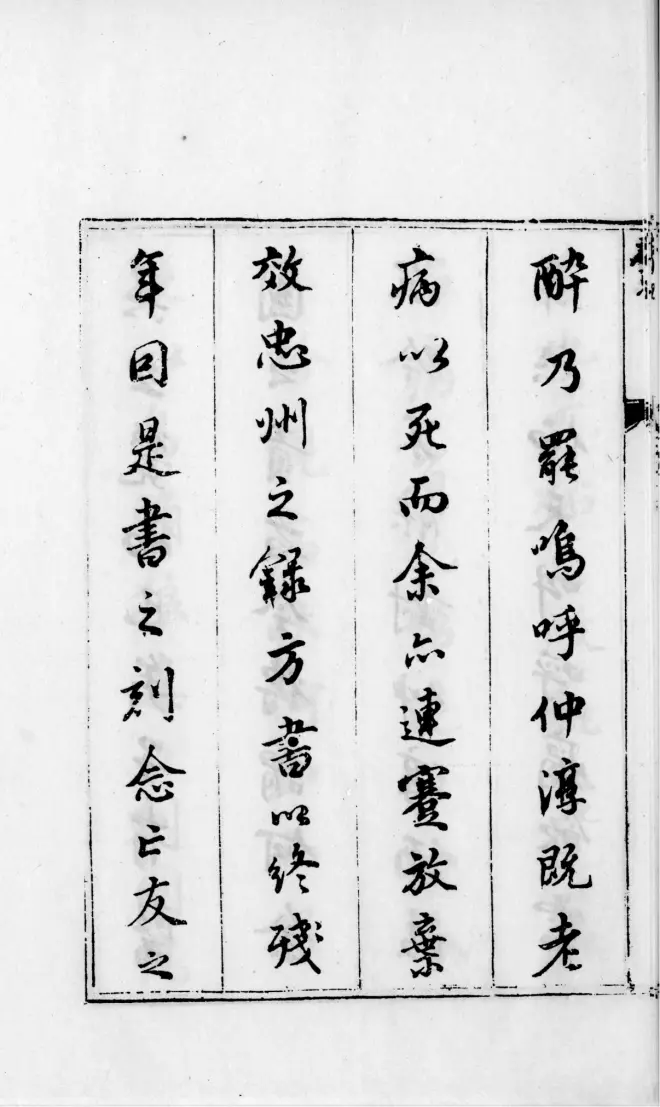 醉乃罷嗚呼仲淳既老
病以死而余亦連蹇放棄
效忠州之錄方書以終殘
年因是書之刻念亡友之